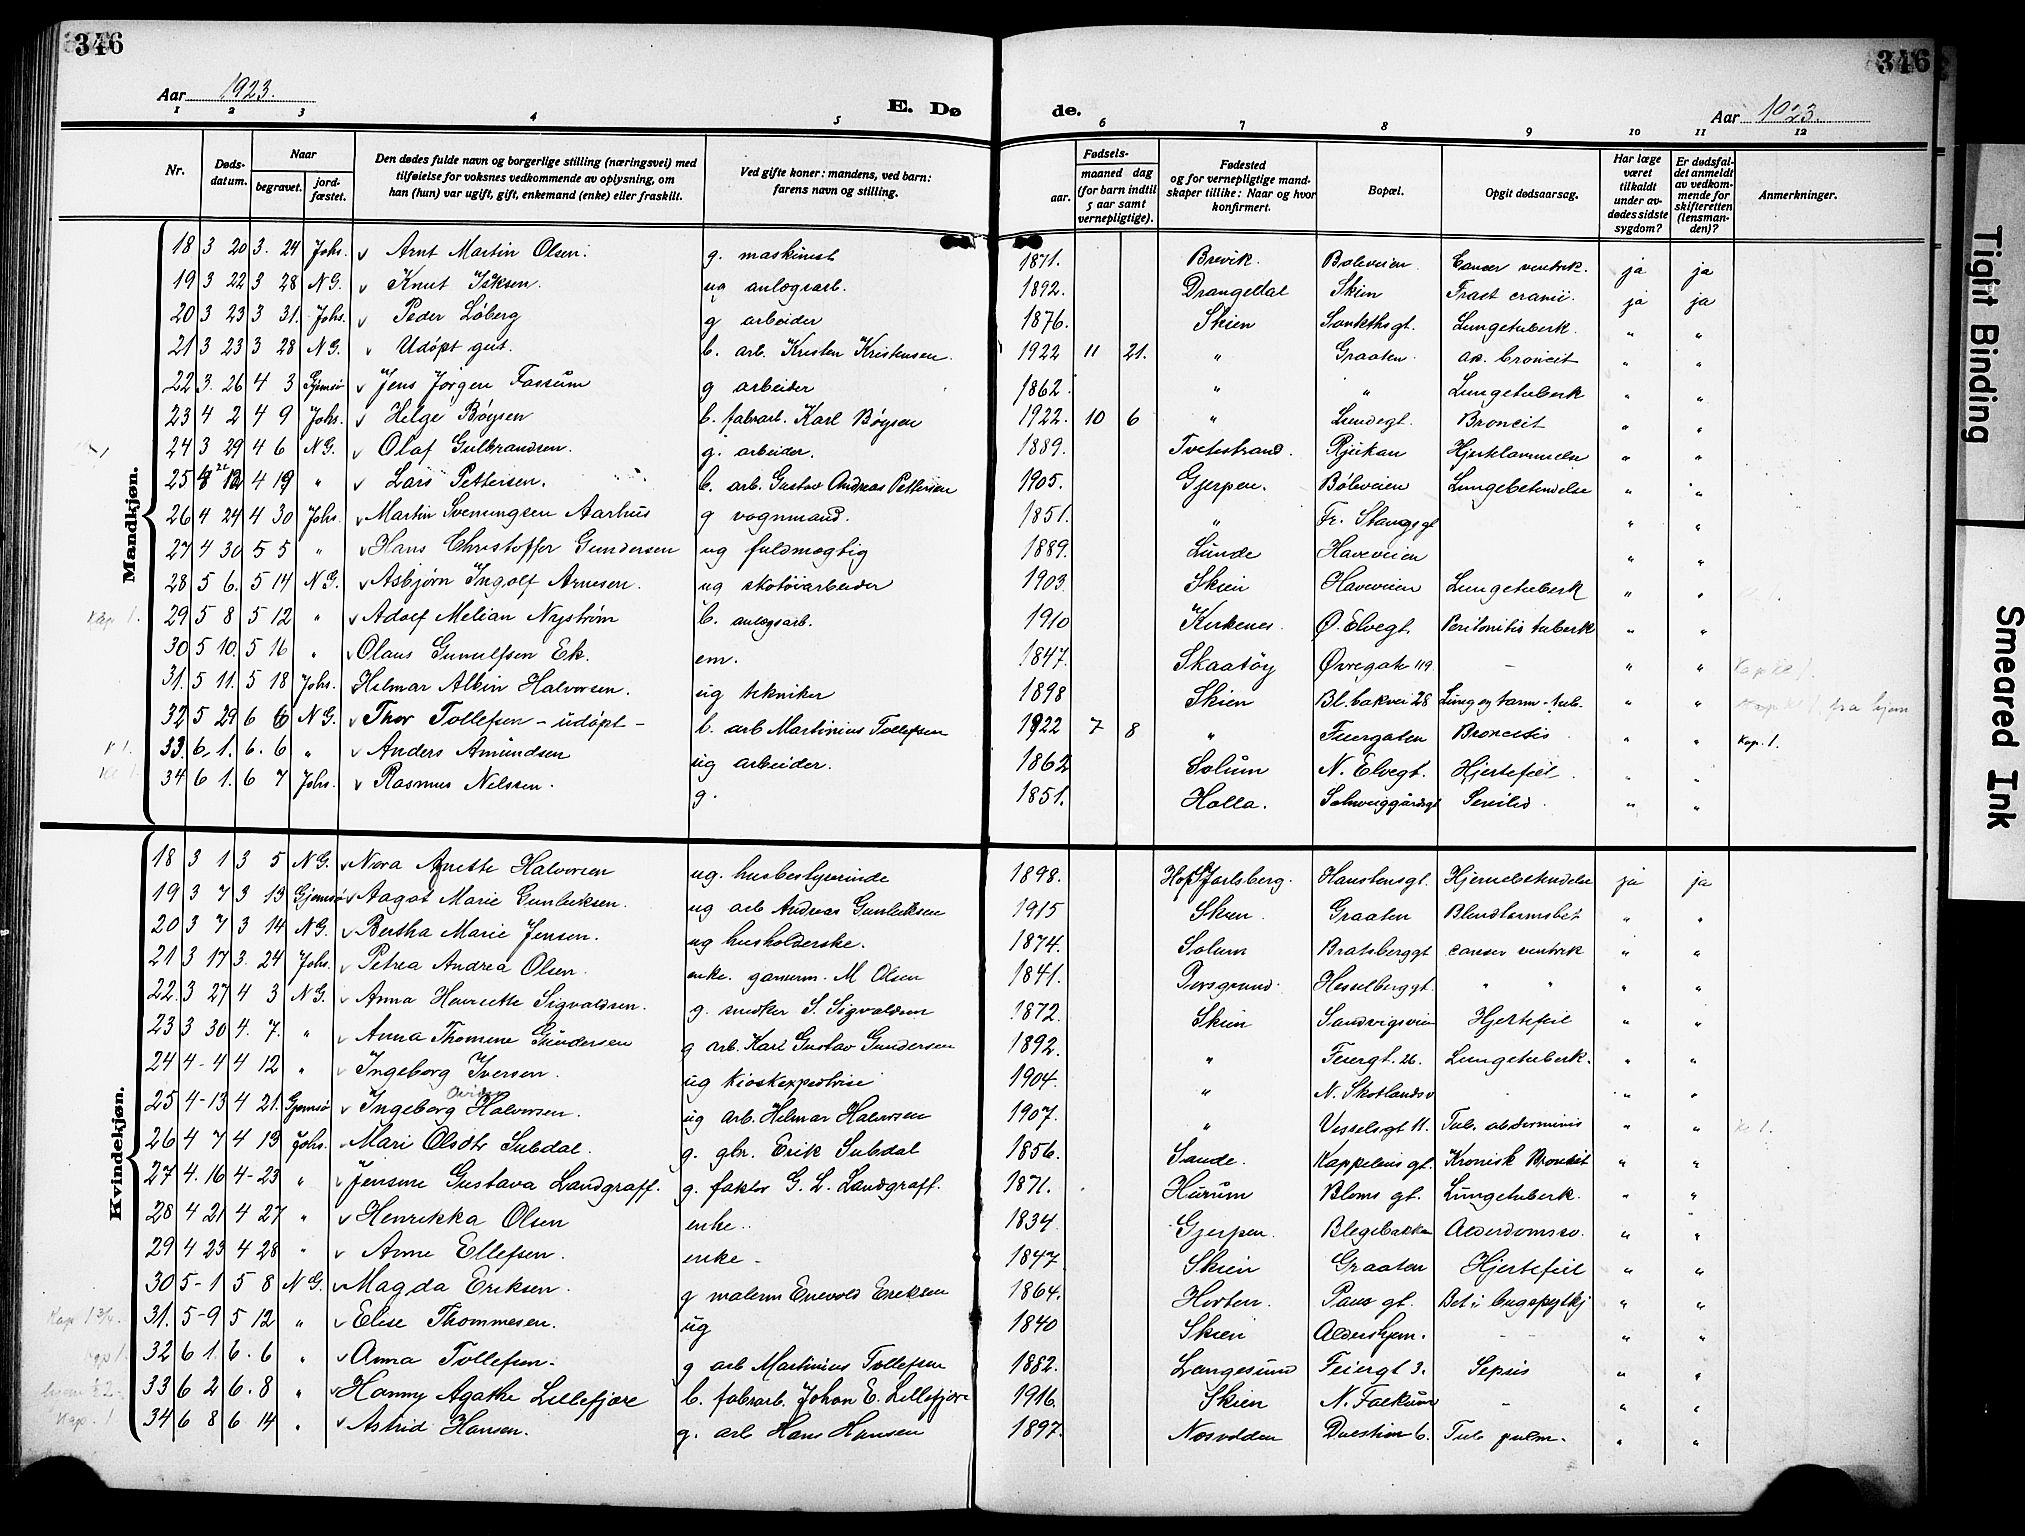 346
346
Aar 1923.
E. Dø
de.
Aar 1923.
1 2 3 4 5 6 7 8 9 10 11 12
Nr.
Døds-datum.
Naar
begravet.
jord-fæstet.
Den dødes fulde navn og borgerlige stilling (næringsvei) med tilføielse for voksnes vedkommende av oplysning, om han (hun) var ugift, gift, enkemand (enke) eller fraskilt.
Ved gifte koner: mandens, ved barn: farens navn og stilling.
Fødsels-
aar.
maaned dag (for barn indtil 5 aar samt vernepligtige).
Fødested og for vernepligtige mand-skaper tillike: Naar og hvor konfirmert.
Bopæl.
Opgit dødsaarsag.
Har læge været tilkaldt under av-dødes sidste sygdom?
Er dødsfal-det anmeldt av vedkom-mende for skifteretten (lensman-den)?
Anmerkninger.
Mandkjøn.
18 3 20 3. 24 Johs. v Arnt Martin Olsen. g. maskinist 1871. Brevik. Boleveien. Cancer ventrik. ja ja
19 3 22 3 28 N G. v Knut Isaksen. ug anlægsarb. 1892. Drangedal Skien Fract cranii. ja ja
20 3 23 3 31. Johs. v Peder Løberg g arbeider 1876. Skien Lungetuberk. " "
21 3 23 3 28 N G. v Udøpt gut. b. arb. Kristen Kristensen. 1922 11 21. " Graaten. ac. broncit " "
22 3. 26 4 3 Gjemsø v Jens Jørgen Fossum g arbeider 1862. " " Lungetuberk " "
23 4 2 4 9 Johs. v Helge Bøgsen b. fabrarb. Karl Bøgsen 1922. 10 6 " Lundegt. Broncit " "
24 3 29 4 6 N G. v Olaf Gulbrandsen. g. arbeider. 1889. Tvetestrand. Rjukan Hjertelammelse " "
25 4 12 4 19 " v Lars Pettersen. b. arb. Gustav Andreas Pettersen 1905. Gjerpen. Bøleveien Lungebetendelse " "
26 4 24 4 30 Johs. v Martin Svenungsen Aarhus g vognmand. 1851. " Fr. Stangsgt " "
27 4 30 5 5 " v Hans Christoffer Gundersen ug fuldmægtig 1889. Lunde Haveveien " "
28 5 6. 5 14 N G. v Asbjørn Ingolf Arnesen. ug skotøiarbeider 1903. Skien Haveveien Lungetuberk " "
29 5 8 5 12 " v Adolf Melian Nystrøm b. anlægsarb. 1910 Kirkenes. Ø. Elvegt. Peritonitis tuberk " "
30 5 10. 5 16 " v Olaus Gunulfsen Ek. em. 1847. Skaatøy Øvregate 119 - " "
31. 5 11. 5 18 Johs. Helmar Albin Halvorsen. ug tekniker 1898 Skien Bl. bakvei 28 Lung og tarm-tub. " "
32 5 29 6 6 N G. v Thor Tollefsen - udøpt - b. arb Martinius Tollefsen 1922 7 8 " Feiergaten Broncitis " " Kap. 1.
33. 6. 1. 6. 6 " v Anders Amundsen ug arbeider. 1862 Solum N. Elvegt. Hjertefeil " "
34 6 1. 6 7 Johs. v Rasmus Nilssen. g. 1851. Holla. Schweigaardsgt Senilis. " "
Kap 1.
K 1.
Kvindekjøn.
18 3 1 3 5 N G. v Nora Agnette Halvorsen ug. husbestyrerinde 1898. Hof Jarlsberg. Hanstensgt. Hjernebetendelse ja ja
19 3 7 3 13 Gjemsø v Aagot Marie Gunleiksen. ug arb Andreas Gunleiksen 1915 Skien. Graaten Blindtarmsbet " "
20 3 7 3 14 N G. v Bertha Marie Jensen. ug husholderske. 1874. Solum Bratsberggt cancer ventrik " "
21 3 17 3. 24 Johs. v Petrea Andrea Olsen. enke. M Olsen 1841. Porsgrund. Hesselberggt. " " " "
22. 3 27 4 3 N G. v Anna Henriette Sigvaldsen. g. snedker S. Sigvaldsen 1872. Skien Sandvigsveien Hjertefeil " "
23 3 30 4. 7. " v Anna Thomine Gundersen g arb. Karl Gustav Gundersen 1892. " Feiergt. 26. Lungetuberk. " "
24 4-4 4 12 " v Ingeborg Iversen. ug kioskexpeditrise 1904. " N. Skotlandsv - " "
25 4-13 4 21. Gjemsø v Ingeborg Halvorsen. ug arb. Helmar Halvorsen 1907. " Vesselsgt 11. Tub. abdominis " "
26 4 7 4 13 Johs. v Mari Olsdtr Subdal. g. gbr. Erik Subdal 1856. Sande. Kappelens gt. Kronisk Broncit " "
27 4. 16 4-23 " v Jensine Gustava Landgraff. g. faktor G. L. Landgraff. 1871. Hurum Bloms gt. Lungetuberk. " "
28 4 21 4 27 " v Henrikka Olsen enke. 1834 Gjerpen. Blegebakken Alderdomssv. " "
29 4 23 4 28 " v Anne Ellefsen. enke - 1847 Skien Graaten Hjertefeil " "
30 5-1 5 8 N G. v Magda Eriksen. g malerm Enevold Eriksen 1864. Horten. Paus gt. " "
31. 5-9 5 12 " v Elise Thommesen. ug 1840 Skien Aldershjem. - " "
32 6 1. 6. 6 " v Anna Tollefsen. g arb Martinius Tollefsen 1882. Langesund Feiergt 3. Sepsis " "
33 6 2 6. 8 " v Hanny Agathe Lillefjære b. fabrarb. Johan E. Lillefjære 1916. Skien N. Falkum - " "
34 6 8 6 14 " v Astrid Hansen. g. arb Hans Hansen 1897. Næsodden Duestien 6. Tub pulm. " "
Kap. 1
Tight Binding
Smeared Ink